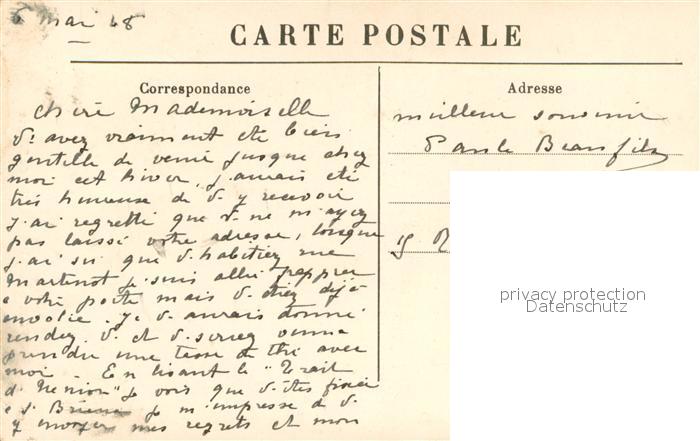 6 mai 48
CARTE POSTALE
Correspondance
Adresse
chère Mademoiselle
V. avez vraiment été bien
gentille de venir jusque chez
moi cet hiver. J'aurais été
très heureuse de v. y recevoir
J'ai regretté que v. ne m'ayez
pas laissé votre adresse, lorsque
j'ai su que v. habitiez rue
Martenot je suis allée frapper
à votre porte mais v. étiez déjà
envolée. Je v. aurais donné
rendez. v. et v. seriez venue
prendre une tasse de thé avec
moi - En lisant le "Trait
d'Union" je vois que v. êtes fixée
à St Brieuc je m'empresse de v.
y envoyer mes regrets et mon
meilleur souvenir
Paule
15 R
privacy protection
Datenschutz